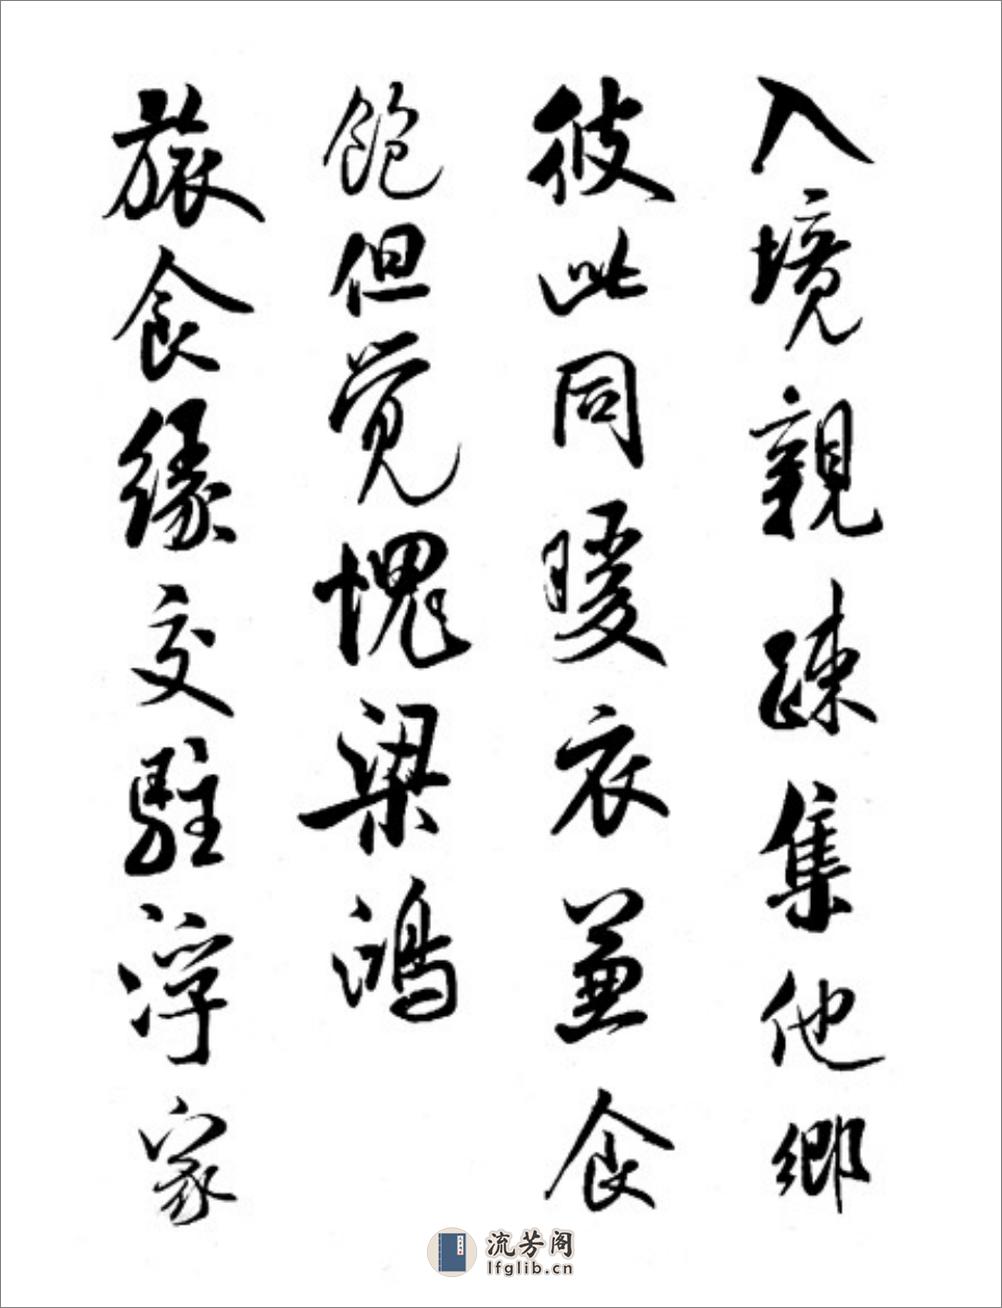 入境親疎集他鄉
彼此同暖衣兼食
飽但觉愧梁鴻
旅食緣交駐浮家
流芳阁
lfglib.cn